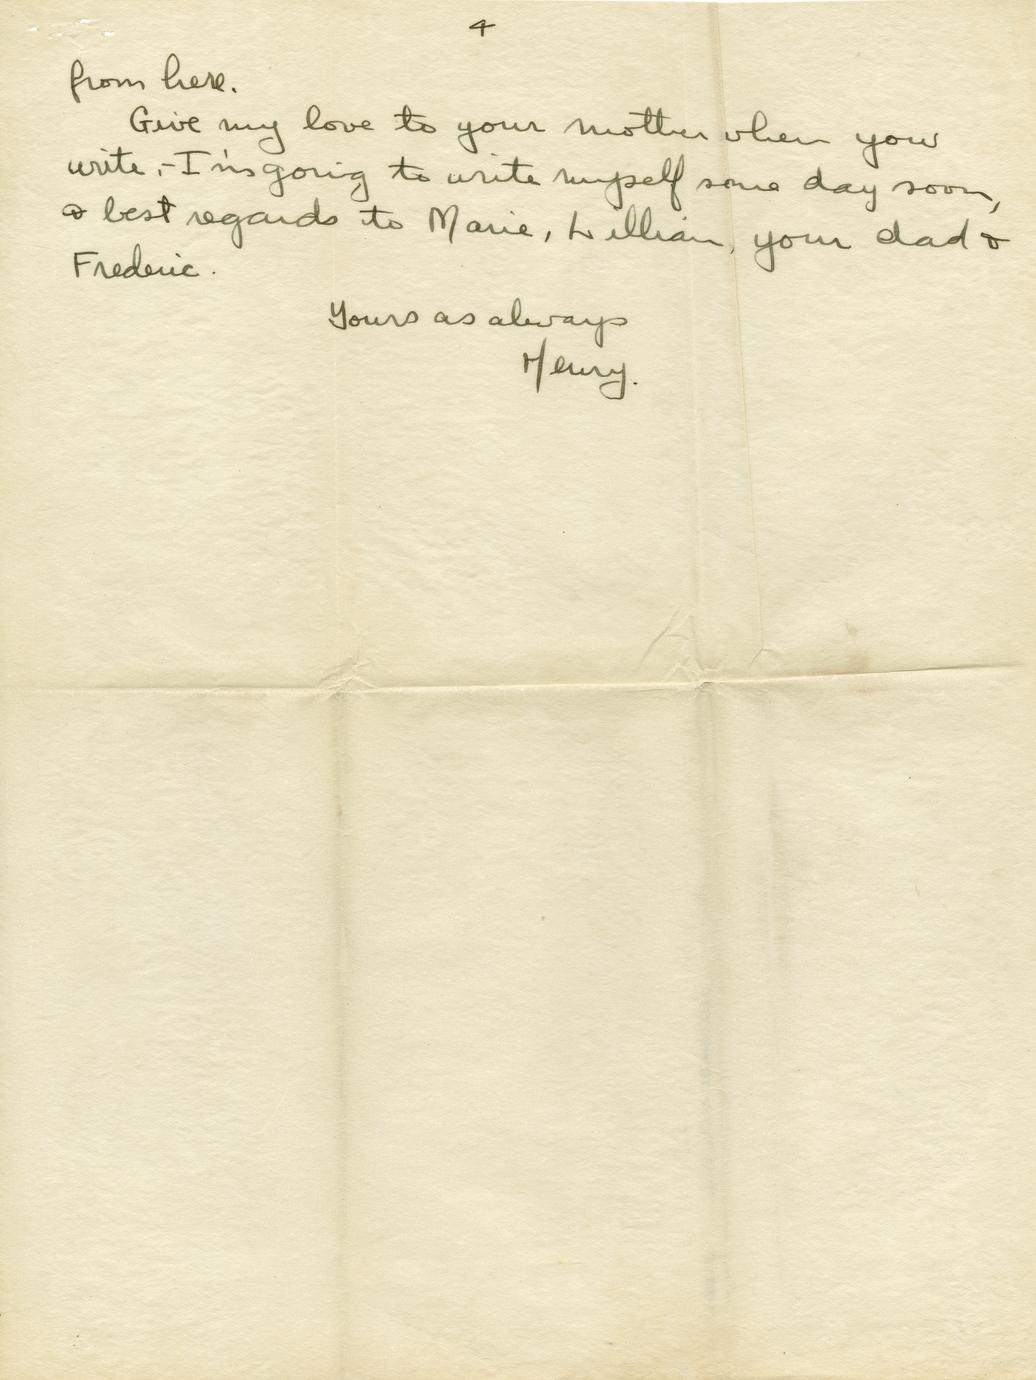 4
from here.
Give my love to your mother when you
write, - I'm going to write myself some day soon,
& best regards to Marie, Lillian, your dad &
Frederic.
Yours as always
Henry.